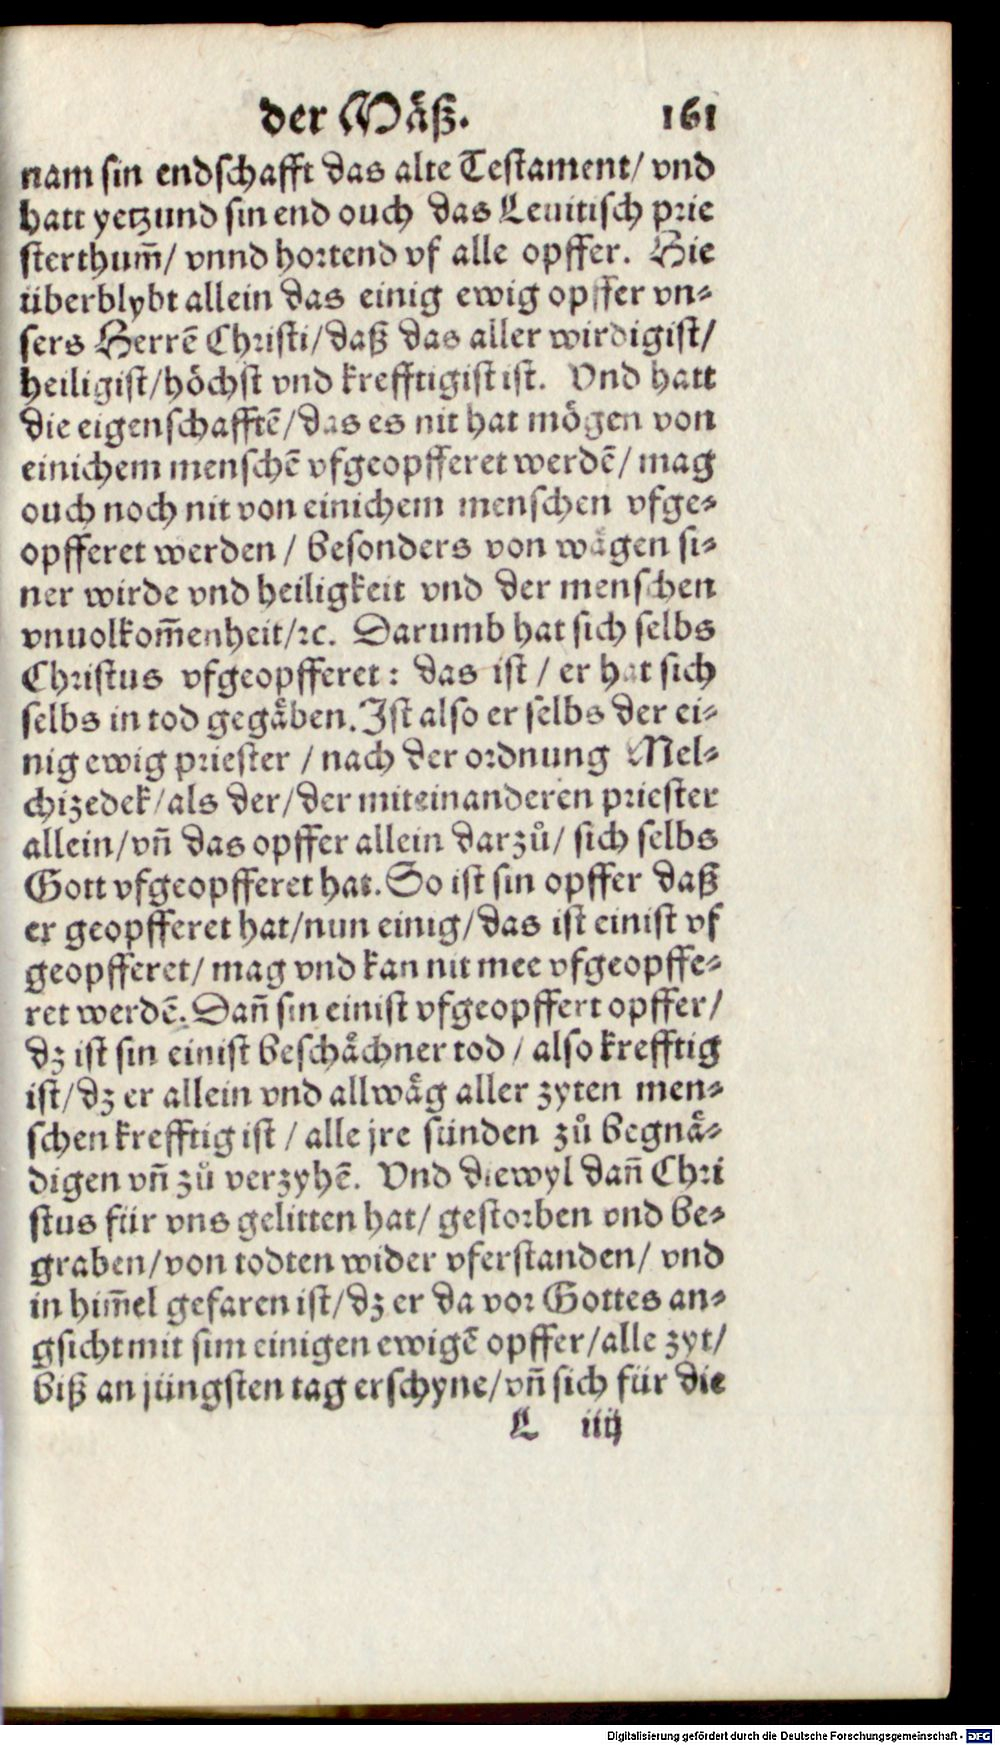 der Mäß. 161
nam sin endschafft das alte Testament/ vnd
hatt yetzund sin end ouch das Leuitisch prie
sterthum̃/ vnnd hortend vf alle opffer. Hie
überblybt allein das einig ewig opffer vn-
sers Herrẽ Christi/daß das aller wirdigist/
heiligist/höchst vnd krefftigist ist. Vnd hatt
die eigenschafftẽ/das es nit hat mögen von
einichem menschẽ vfgeopfferet werdẽ/ mag
ouch noch nit von einichem menschen vfge-
opfferet werden / besonders von wägen si-
ner wirde vnd heiligkeit vnd der menschen
vnuolkom̃enheit/ꝛc. Darumb hat sich selbs
Christus vfgeopfferet: das ist / er hat sich
selbs in tod gegäben. Ist also er selbs der ei-
nig ewig priester / nach der ordnung Mel-
chizedek/als der/der miteinanderen priester
allein/vñ das opffer allein darzů/ sich selbs
Gott vfgeopfferet hat. So ist sin opffer daß
er geopfferet hat/nun einig/das ist einist vf
geopfferet/ mag vnd kan nit mee vfgeopffe-
ret werdẽ. Dañ sin einist vfgeopffert opffer/
dz ist sin einist beschächner tod / also krefftig
ist/dz er allein vnd allwäg aller zyten men-
schen krefftig ist / alle jre sünden zů begnä-
digen vñ zů verzyhẽ. Vnd diewyl dañ Chri
stus für vns gelitten hat/ gestorben vnd be-
graben/von todten wider vferstanden/ vnd
in him̃el gefaren ist/dz er da vor Gottes an-
gsicht mit sim einigen ewigẽ opffer/alle zyt/
biß an jüngsten tag erschyne/vñ sich für die
L iiij
Digitalisierung gefördert durch die Deutsche Forschungsgemeinschaft - DFG